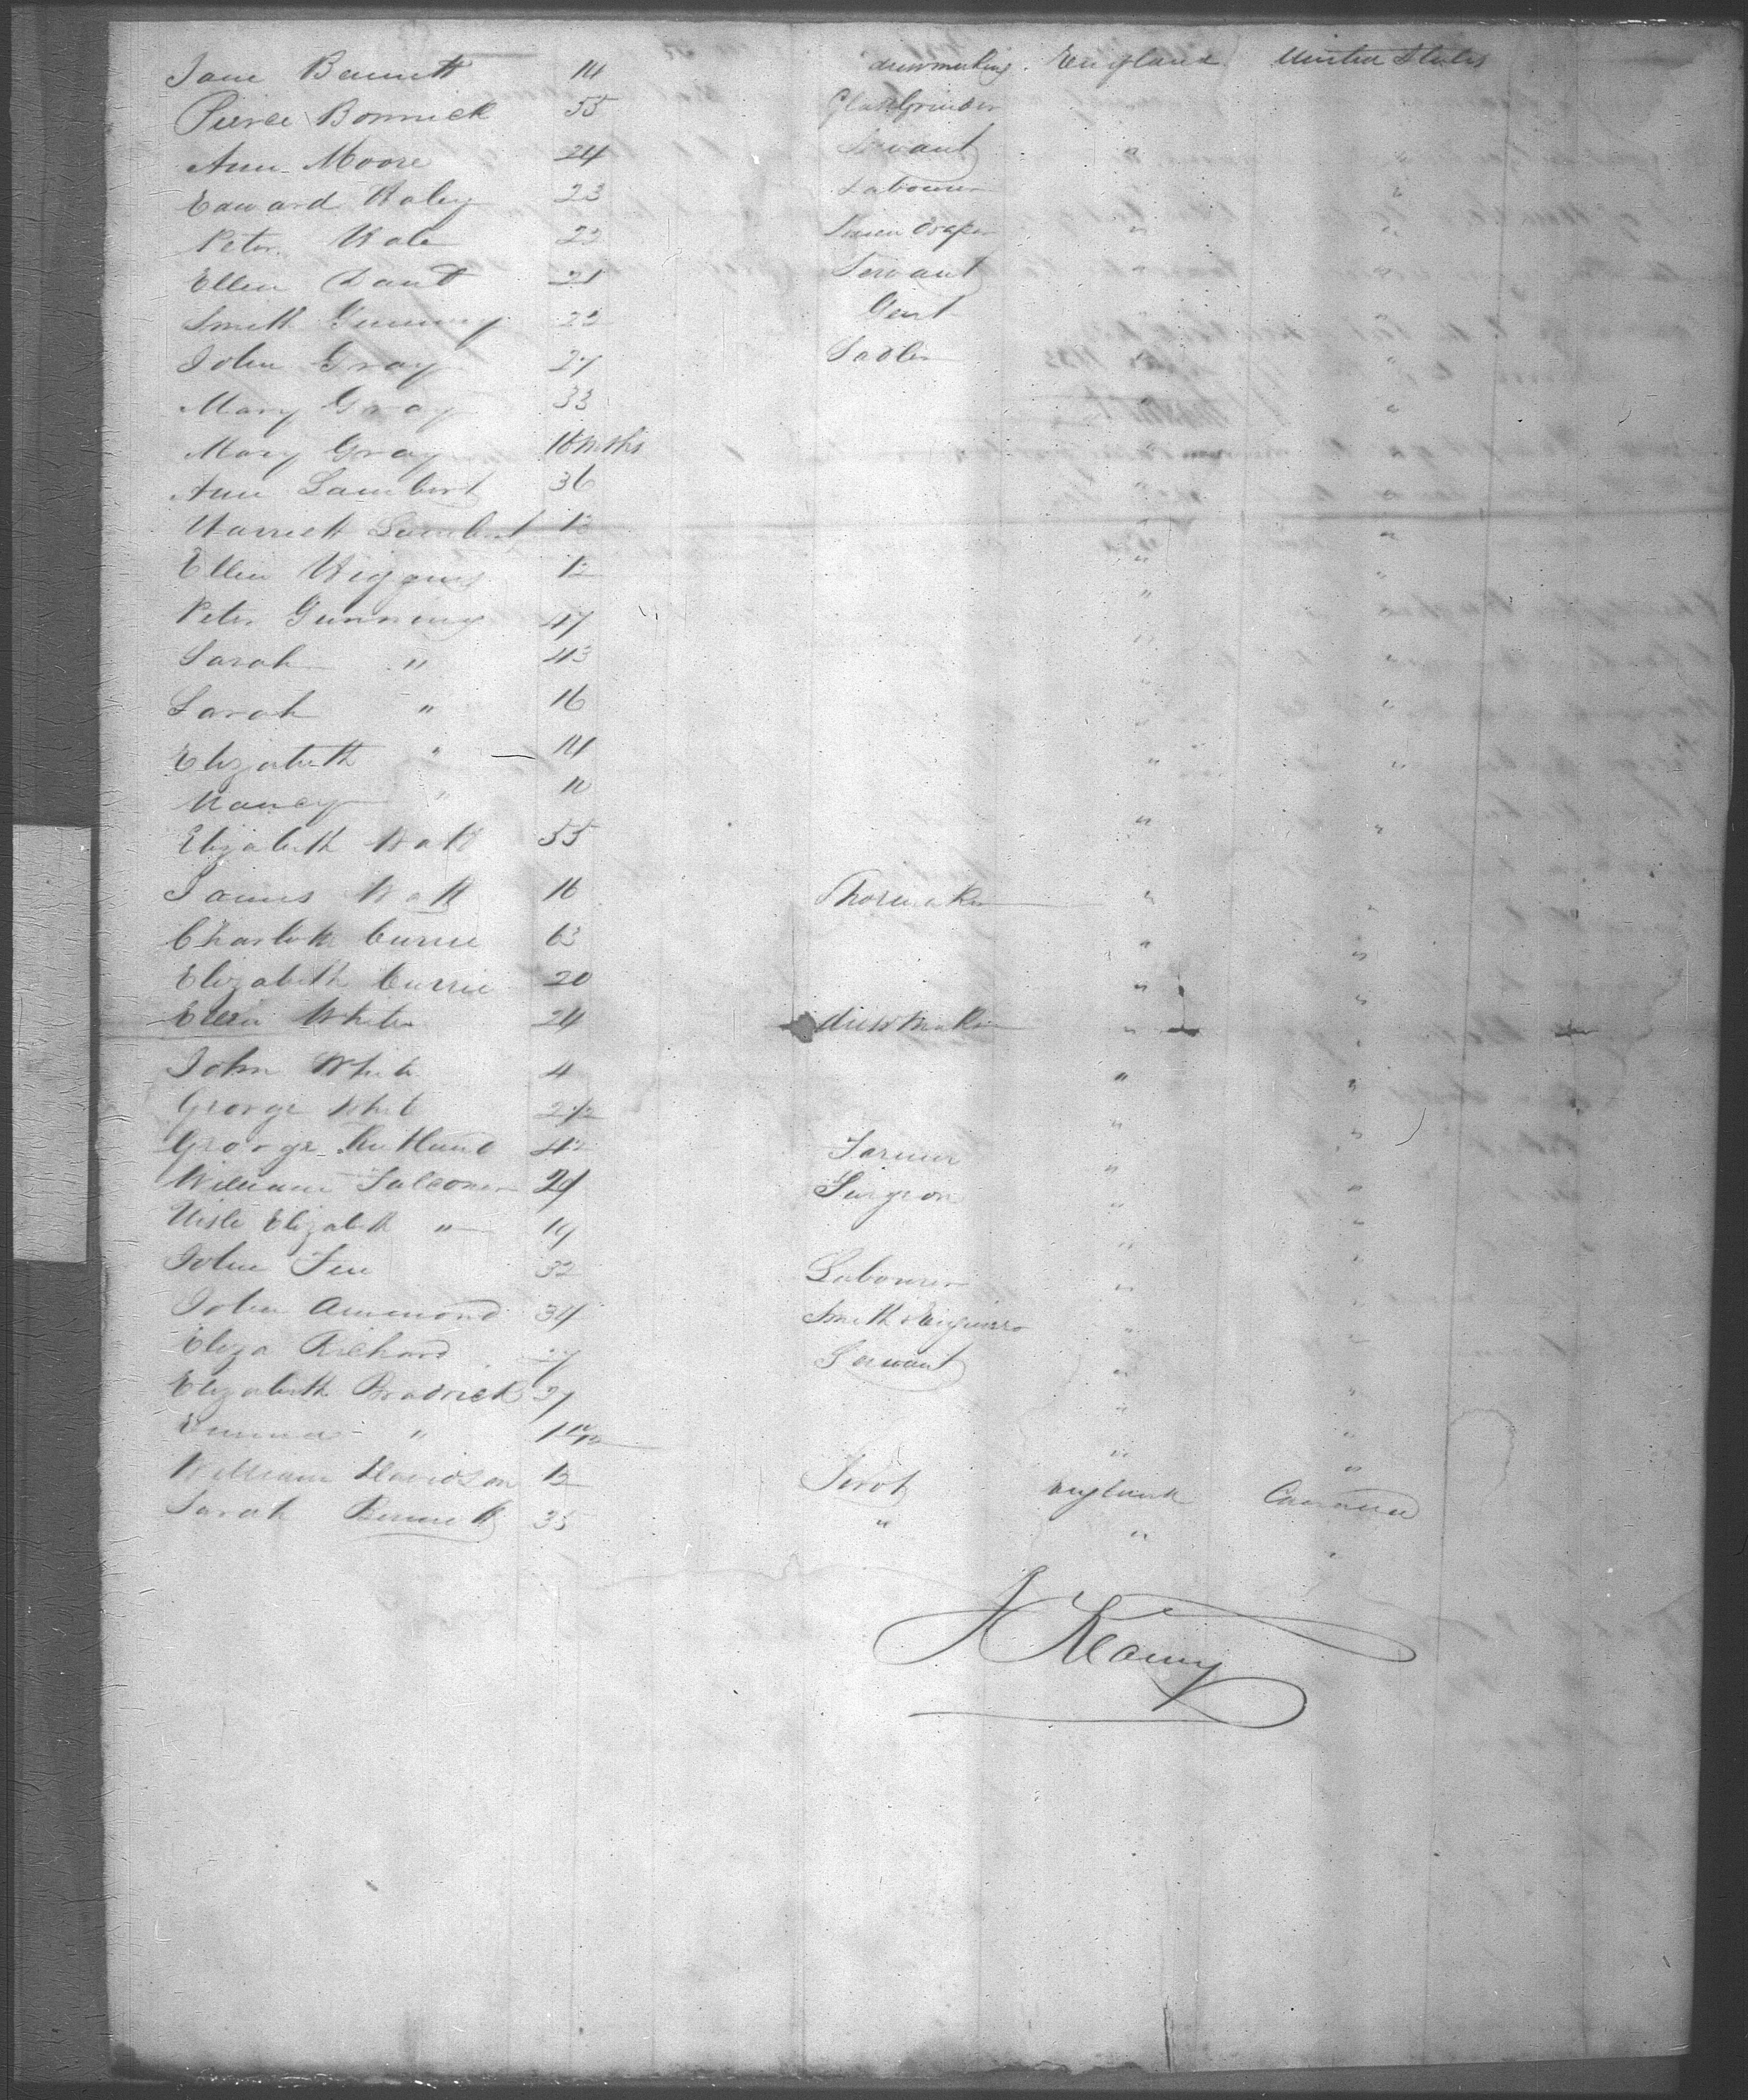 Jane Bennett 14 dressmaking England United States
Pierce Bonnick 55 Glass Grinder
Ann Moore 24 Servant " "
Edward Haley 23 Labourer "
Peter Hale 22 Linen Draper " "
Ellen 21 Servant " "
Smith Gunning 22 Gent
John Gray 27 Sadler " "
Mary Gray 33 "
Mary Gray 18 Mths "
Ann Lambert 36 "
Harriett Lambert 13 " "
Ellen Higgins 12 " "
Peter Gunning 47 "
Sarah " 43 "
Sarah " 16 " "
Elizabeth " 14 "
Nancy " 10 " "
Elizabeth Watt 55 " "
James Watt 16 Shoemaker " "
Charlotte Currie 63 " "
Elizabeth Currie 20 " "
White 24 dressmaker " "
John White 4 " "
George White 2 1/2 " "
George Rutland 42 Farmer " "
William Falconer 29 Surgeon " "
Elizabeth " 19 " "
John 32 Labourer " "
John Ammond 34 Smith & Engineer " "
Eliza Richard 27 Servant " "
Elizabeth Bradrick 27 " "
Emma " 1 " "
William Davidson 12 Scot England Canada
Sarah Bennett 35 " " "
Keaney